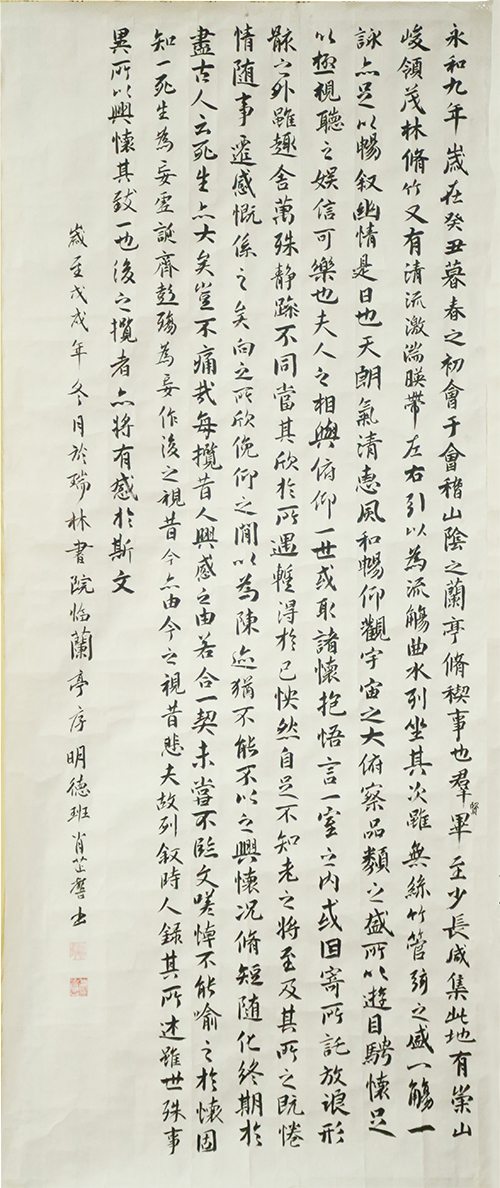 永和九年歲在癸丑暮春之初會于會稽山陰之蘭亭脩稧事也羣賢畢至少長咸集此地有崇山
峻領茂林脩竹又有清流激湍暎帶左右引以為流觴曲水列坐其次雖無絲竹管弦之盛一觴一
詠亦足以暢叙幽情是日也天朗氣清惠風和暢仰觀宇宙之大俯察品類之盛所以遊目騁懷足
以極視聽之娛信可樂也夫人之相與俯仰一世或取諸懷抱悟言一室之內或因寄所託放浪形
骸之外雖趣舍萬殊静躁不同當其欣於所遇蹔得於己怏然自足不知老之將至及其所之既惓
情随事遷感慨係之矣向之所欣俛仰之閒以為陳迹猶不能不以之興懷况脩短随化終期於
盡古人云死生亦大矣豈不痛哉每攬昔人興感之由若合一契未嘗不臨文嗟悼不能喻之於懷固
知一死生為妄虛誕齊彭殤為妄作後之視昔今亦由今之視昔悲夫故列叙時人錄其所述雖世殊事
異所以興懷其致一也後之攬者亦將有感於斯文
歲至戊戌年冬月於瑞林書院临蘭亭序明德班肖芷馨书